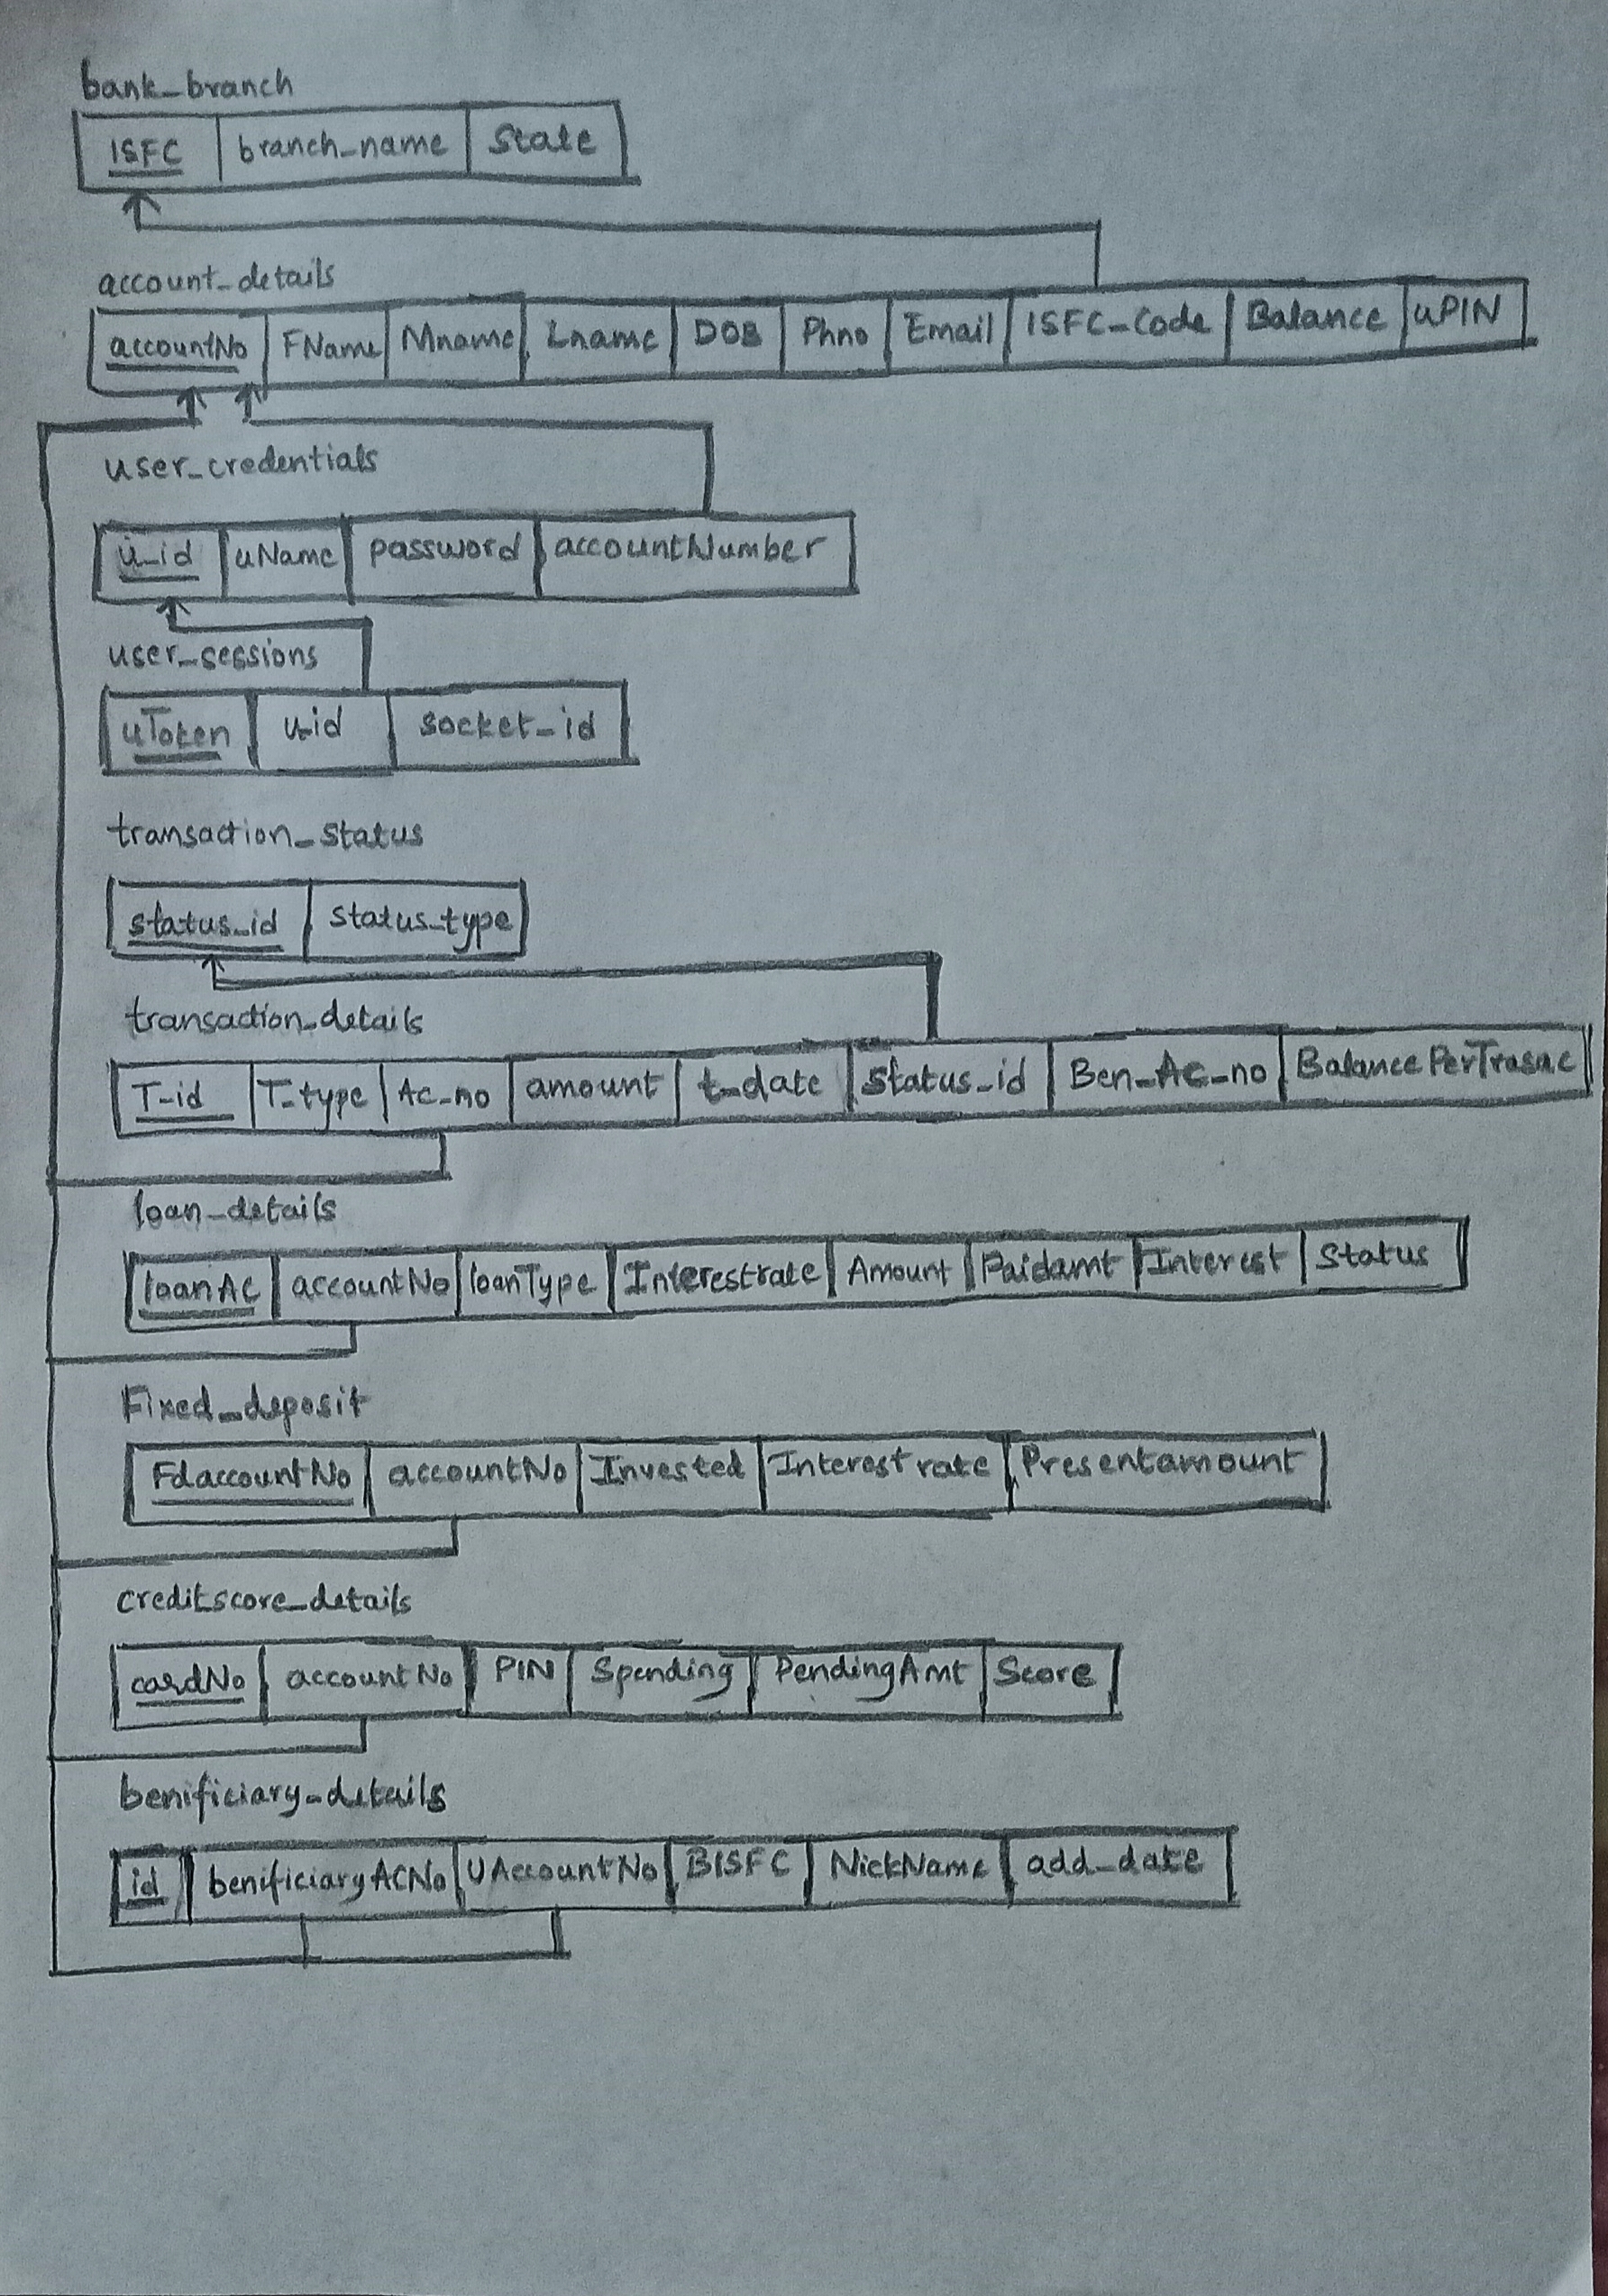 bank_branch
ISFC branch_name State
account_details
accountNo FName Mname Lname DOB Phno Email ISFC_Code Balance uPIN
user_credentials
u_id uName password accountNumber
user_sessions
uToken u_id socket_id
transaction_status
status_id status_type
transaction_details
T_id T_type Ac_no amount t_date Status_id Ben_Ac_no BalancePerTrasac
loan_details
loanAC accountNo loanType Interestrate Amount Paidamt Interest Status
Fixed_deposit
FdaccountNo accountNo Invested Interestrate Presentamount
creditscore_details
cardNo accountNo PIN Spending PendingAmt Score
benificiary_details
id benificiaryACNo UAccountNo BISFC NickName add_date